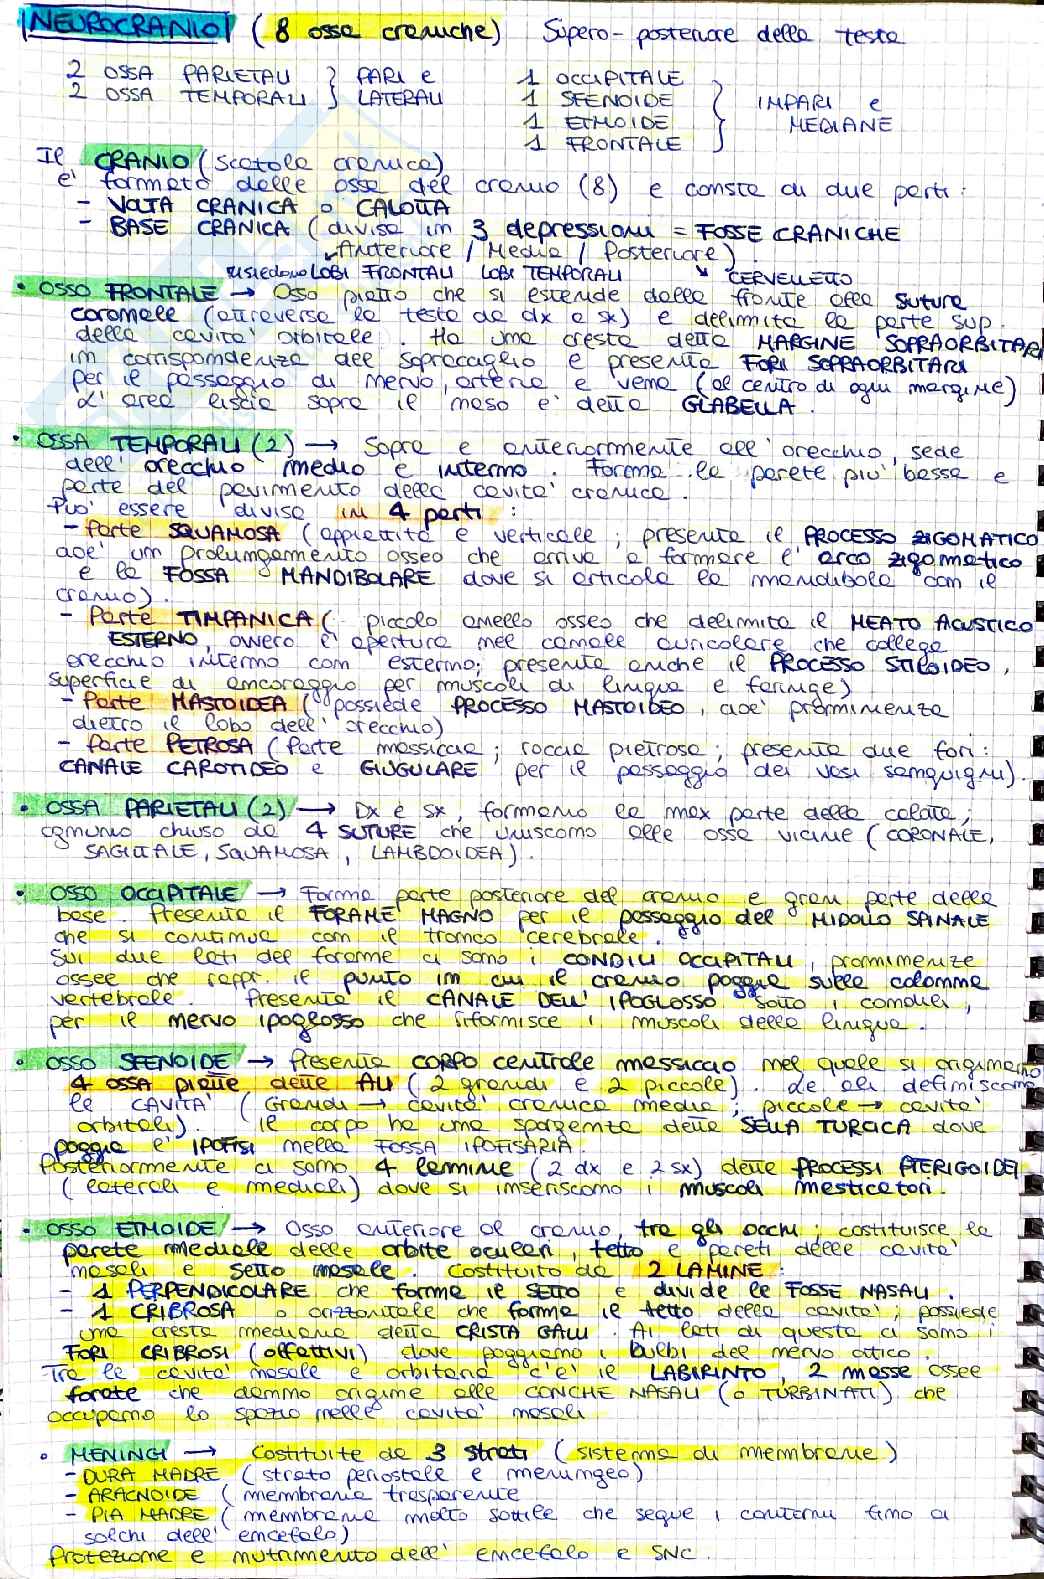 NEUROCRANIO (8 ossa craniche) Supero-posteriore della testa
2 OSSA PARIETALI } PARI e 1 OCCIPITALE
2 OSSA TEMPORALI } LATERALI 1 SFENOIDE } IMPARI e
1 ETMOIDE MEDIANE
1 FRONTALE
Il CRANIO (scatola cranica)
e' formato dalle ossa del cranio (8) e consta di due parti:
- VOLTA CRANICA o CALOTTA
- BASE CRANICA (divisa in 3 depressioni = FOSSE CRANICHE
Anteriore / Media / Posteriore).
risiedono LOBI FRONTALI LOBI TEMPORALI CERVELLETTO
• OSSO FRONTALE → Osso piatto che si estende dalla fronte alla sutura
coronale (attraversa la testa da dx a sx) e delimita la parte sup.
della cavita' orbitale. Ha una cresta detta MARGINE SOPRAORBITARI
in corrispondenza del sopracciglio e presenta FORI SOPRAORBITARI
per il passaggio di nervo, arteria e vena (al centro di ogni margine)
L' area liscia sopra il naso e' detta GLABELLA.
• OSSA TEMPORALI (2) → Sopra e anteriormente all' orecchio, sede
dell' orecchio medio e interno. Forma la parete piu' bassa e
parte del pavimento della cavita' cranica.
Puo' essere divisa in 4 parti:
- Parte SQUAMOSA (appiattita e verticale; presenta il PROCESSO ZIGOMATICO
cioe' un prolungamento osseo che arriva a formare l' arco zigomatico
e la FOSSA MANDIBOLARE dove si articola la mandibola con il
cranio).
- Parte TIMPANICA ( piccolo anello osseo che delimita il MEATO ACUSTICO
ESTERNO, ovvero l' apertura nel canale auricolare che collega
orecchio interno con esterno; presenta anche il PROCESSO STILOIDEO,
superficie di ancoraggio per muscoli di lingua e faringe)
- Parte MASTOIDEA (possiede PROCESSO MASTOIDEO, cioe' prominenza
dietro il lobo dell' orecchio)
- Parte PETROSA (Parte massiccia; roccia pietrosa; presenta due fori:
CANALE CAROTIDEO e GIUGULARE per il passaggio dei vasi sanguigni).
• OSSA PARIETALI (2) → Dx e sx, formano la max parte della calotta;
ognuno chiuso da 4 SUTURE che uniscono alle ossa vicine (CORONALE,
SAGITTALE, SQUAMOSA, LAMBDOIDEA).
• OSSO OCCIPITALE → Forma parte posteriore del cranio e gran parte della
base. Presenta il FORAME MAGNO per il passaggio del MIDOLLO SPINALE
che si continua con il tronco cerebrale.
Sui due lati del forame ci sono i CONDILI OCCIPITALI, prominenze
ossee che rappr. il punto in cui il cranio poggia sulla colonna
vertebrale. Presenta il CANALE DELL' IPOGLOSSO sotto i condili,
per il nervo ipoglosso che rifornisce i muscoli della lingua.
• OSSO SFENOIDE → Presenta CORPO centrale massiccio nel quale si originano
4 OSSA piatte dette ALI (2 grandi e 2 piccole). Le ali definiscono
le CAVITA' (Grandi → cavita' cranica media; piccole → cavita'
orbitali). Il corpo ha una sporgenza detta SELLA TURCICA dove
poggia l' IPOFISI nella FOSSA IPOFISARIA.
Posteriormente ci sono 4 lamine (2 dx e 2 sx) dette PROCESSI PTERIGOIDEI
(laterali e mediali) dove si inseriscono i muscoli masticatori.
• OSSO ETMOIDE → Osso anteriore al cranio, tra gli occhi; costituisce la
parete mediale delle orbite oculari, tetto e pareti delle cavita'
nasali e setto nasale. Costituito da 2 LAMINE:
- 1 PERPENDICOLARE che forma il SETTO e divide le FOSSE NASALI.
- 1 CRIBROSA o orizzontale che forma il tetto della cavita'; possiede
una cresta mediana detta CRISTA GALLI. Ai lati di questa ci sono i
FORI CRIBROSI (olfattivi) dove poggiano i bulbi del nervo ottico.
Tra le cavita' nasale e orbitaria c'e' il LABIRINTO, 2 masse ossee
forate che danno origine alle CONCHE NASALI (o TURBINATI) che
occupano lo spazio nelle cavita' nasali
• MENINGI → Costituite da 3 strati (sistema di membrane)
- DURA MADRE (strato periostale e meningeo)
- ARACNOIDE (membrana trasparente
- PIA MADRE (membrana molto sottile che segue i contorni fino ai
solchi dell' encefalo)
Protezione e nutrimento dell' encefalo e SNC.